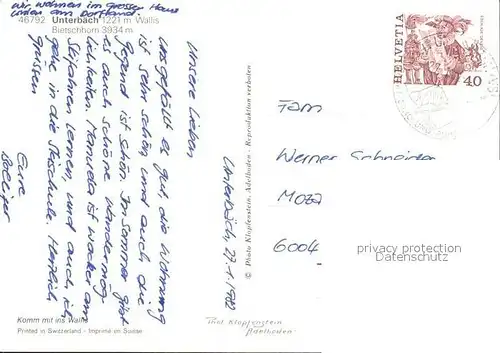 wir wohnen im grossen Haus
unten am Dorfrand.
46792 Unterbäch 1221 m Wallis
Bietschhorn 3934 m
Unterbäch, 27.1.1982
Unsere Lieben
Uns gefällt es gut, die Wohnung
ist sehr schön und auch die
Gegend ist schön. Im Sommer gibt
es auch schöne Wandermög
lichkeiten. Manuela ist wacker am
Skifahren lernen, und auch ich
gehe in die Skischule. Herzlich
Grüssen
Eure
Komm mit ins Wallis
Printed in Switzerland - Imprimé en Suisse
© Photo Klopfenstein, Adelboden - Reproduktion verboten
Photo Klopfenstein
Adelboden
HELVETIA
40
Fam
Werner Schneider
6004
privacy protection
Datenschutz